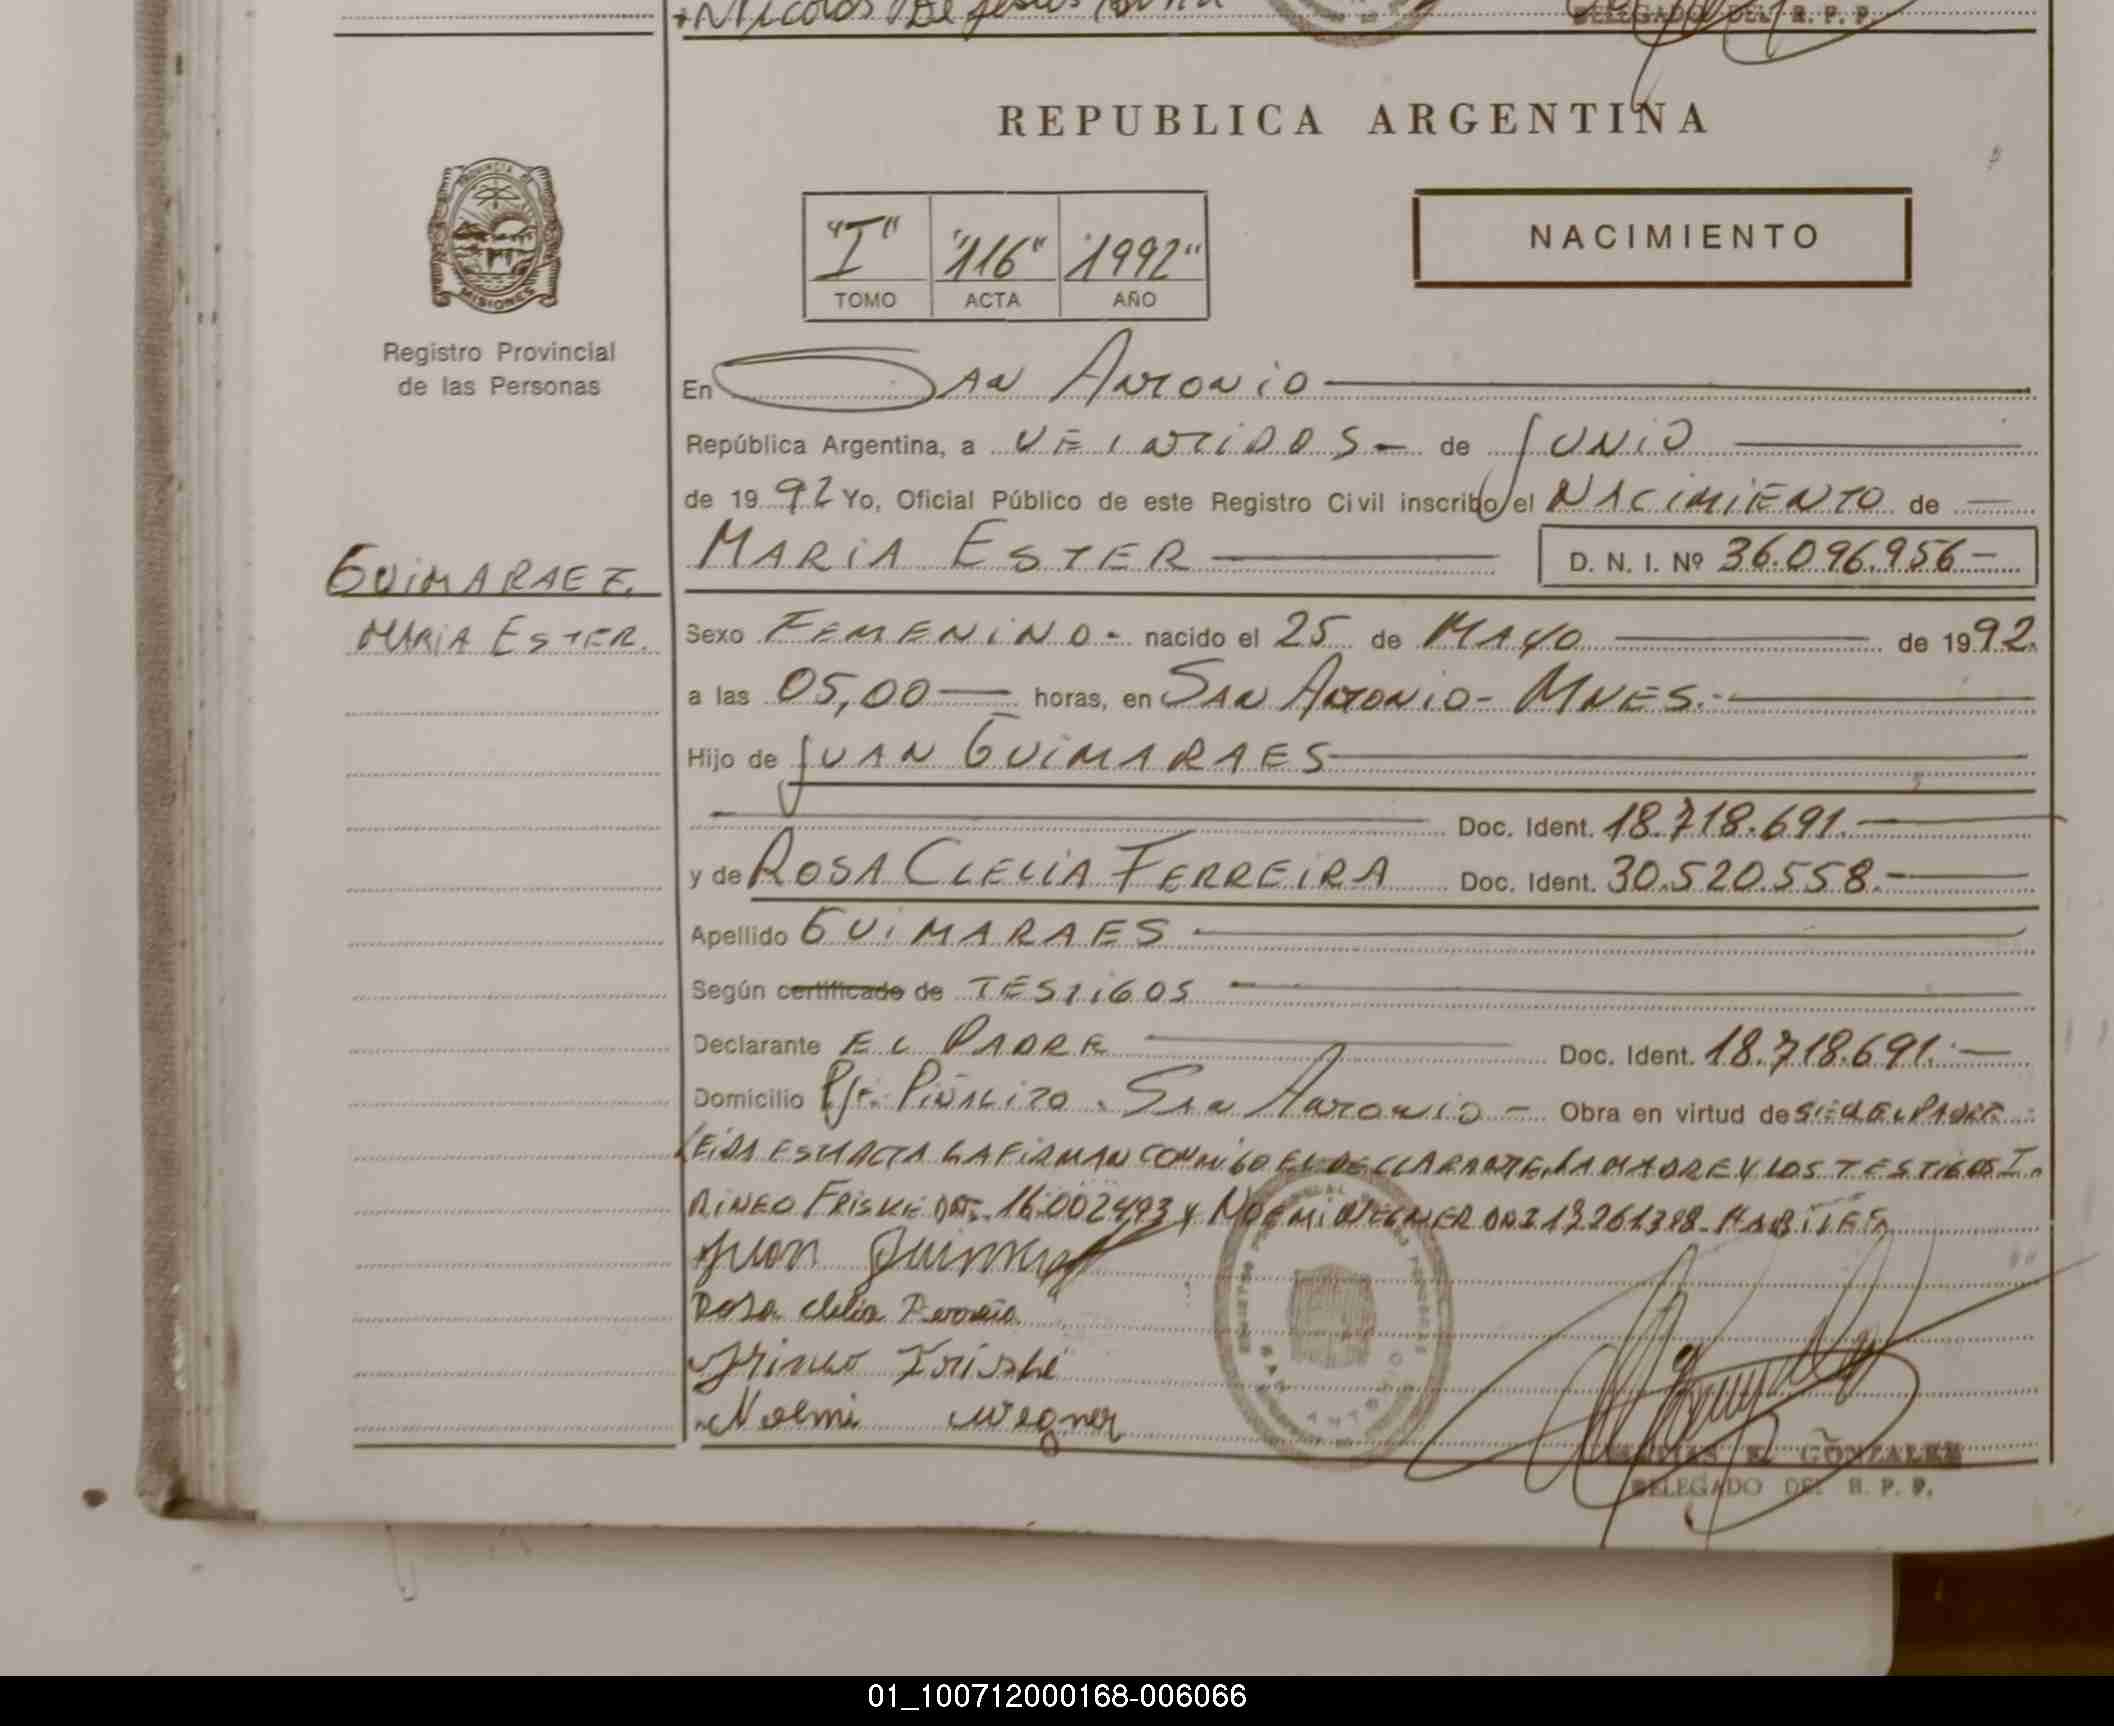 + Nicolas De Jesus
DELEGADO DEL R. P. P.
REPUBLICA ARGENTINA
PROVINCIA DE
MISIONES
Registro Provincial
de las Personas
"I" "116" "1992"
TOMO ACTA AÑO
NACIMIENTO
En San Antonio
República Argentina, a VEINTIDOS - de JUNIO
de 1992 Yo, Oficial Público de este Registro Civil inscribo el NACIMIENTO de
MARIA ESTER D. N. I. Nº 36.096.956-
GUIMARAEZ.
MARIA ESTER.
Sexo FEMENINO - nacido el 25 de MAYO de 1992.
a las 05,00 horas, en SAN ANTONIO - MNES.-
Hijo de JUAN GUIMARAES
Doc. Ident. 18.718.691.
y de ROSA CLELIA FERREIRA Doc. Ident. 30.520.558.-
Apellido GUIMARAES
Según certificado de TESTIGOS
Declarante EL PADRE Doc. Ident. 18.718.691.-
Domicilio Pje. PIÑALITO - SAN ANTONIO - Obra en virtud de SER EL PADRE
LEIDA ESTA ACTA LA FIRMAN CONMIGO EL DECLARANTE, LA MADRE Y LOS TESTIGOS I-
RINEO FRISKE DNI. 16.002.493 Y NOEMI WEGNER DNI HABILES
Juan
Rosa clelia Ferreira
Irineo Friske
Noemi Wegner
SAN ANTONIO
E. GONZALEZ
DELEGADO DEL R. P. P.
01_100712000168-006066